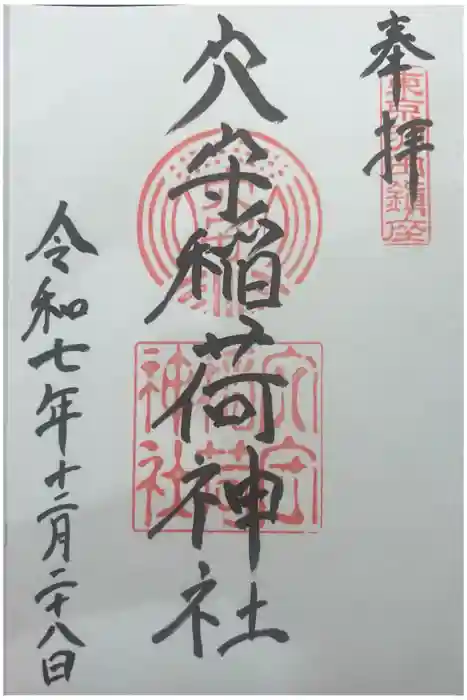 奉拝
東京羽田鎮座
穴守稲荷神社
穴守
稲荷
神社
令和七年十二月二十八日